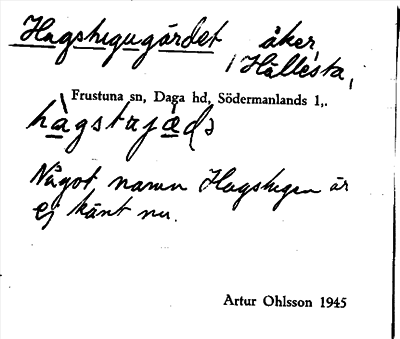 Hagstugugärdet åker,
Hållesta,
Frustuna sn, Daga hd, Södermanlands l,.
Något namn Hagstugan är
ej känt nu.
Artur Ohlsson 1945